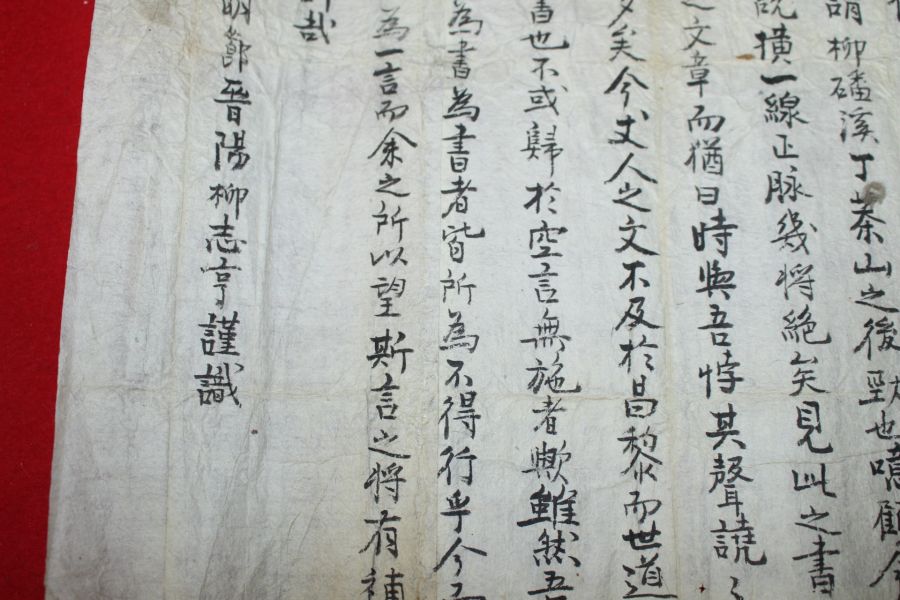 謂柳磻溪丁茶山之後勁也噫顧今
說橫一線正脉幾將絶矣見此之書
之文章而猶曰時與吾悖其聲譊〻
矣今丈人之文不及於昌黎而世道
書也不或歸於空言無施者歟雖然吾
為書為書者皆所為不得行乎今而
為一言而余之所以望斯言之將有補
哉
明節晋陽柳志亨謹識